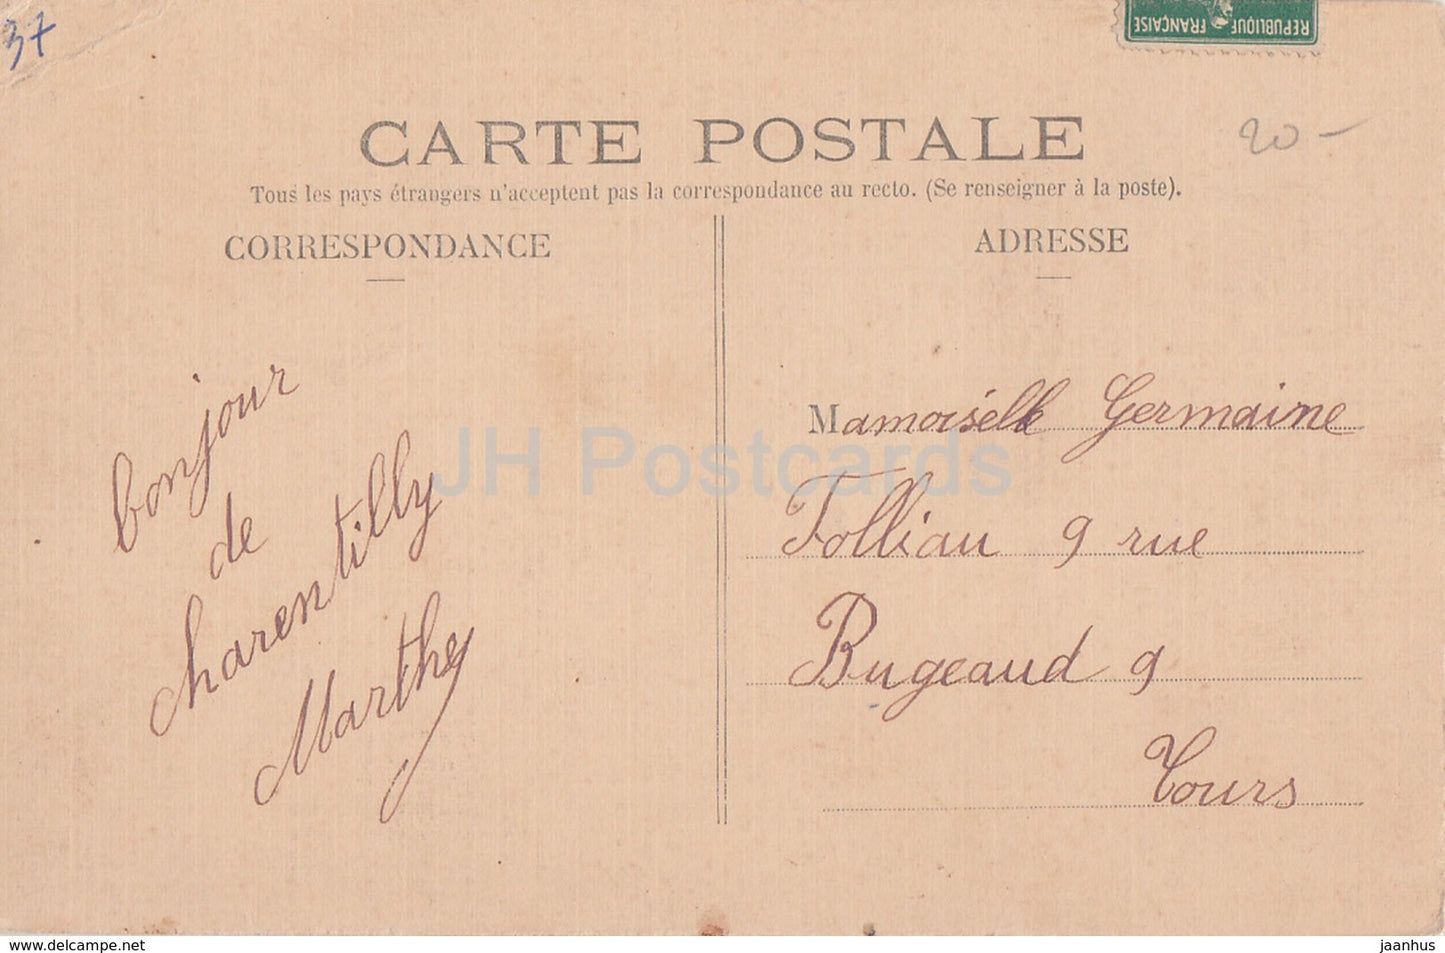 37
REPUBLIQUE FRANÇAISE
CARTE POSTALE
20 -
Tous les pays étrangers n'acceptent pas la correspondance au recto. (Se renseigner à la poste).
CORRESPONDANCE
bonjour
de
charentilly
Marthe
ADRESSE
Mamoisélle Germaine
Folliau 9 rue
Bugeaud 9
Tours
JH Postcards
hip.delcampe.net
jaanhus